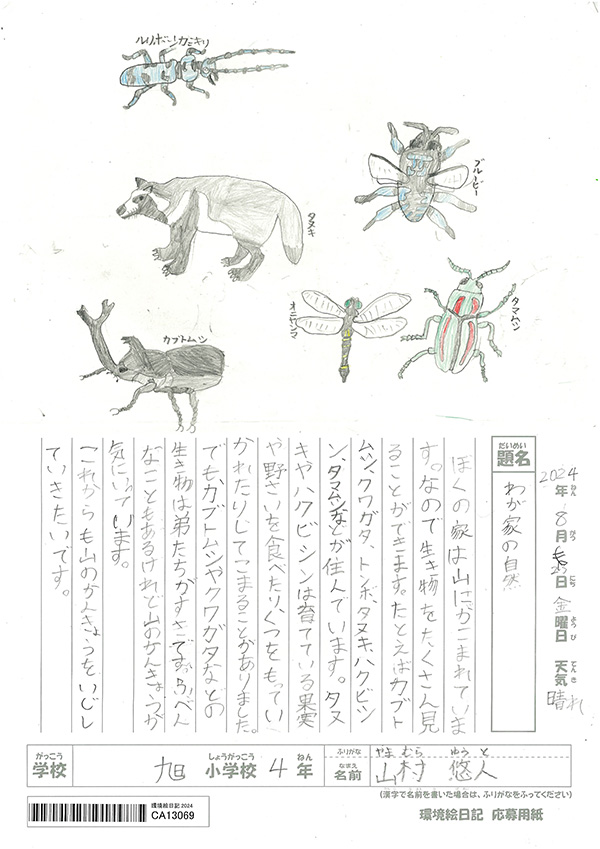 ルリボシカミキリ
ブルービー
タヌキ
オニヤンマ
タマムシ
カブトムシ
だいめい
題名
わが家の自然
2024年 8月 日 金曜日 天気 晴れ
ねん がつ にち ようび てんき
ぼくの家は山にかこまれていま
す。なので生き物をたくさん見
ることができます。たとえばカブト
ムシ、クワガタ、トンボ、タヌキ、ハクビシ
ン、タマムシなどが住んでいます。タヌ
キやハクビシンは育てている果実
や野さいを食べたり、くつをもってい
かれたりしてこまることがありました。
でも、カブトムシやクワガタなどの
生き物は弟たちがすきです。ふべん
なこともあるけれど山のかんきょうが
気にいっています。
これからも山のかんきょうをいじし
ていきたいです。
がっこう
学校
旭
しょうがっこう
小学校
4
ねん
年
ふりがな
なまえ
名前
やま むら ゆう と
山村 悠人
(漢字で名前を書いた場合は、ふりがなをふってください)
環境絵日記 2024
CA13069
環境絵日記 応募用紙